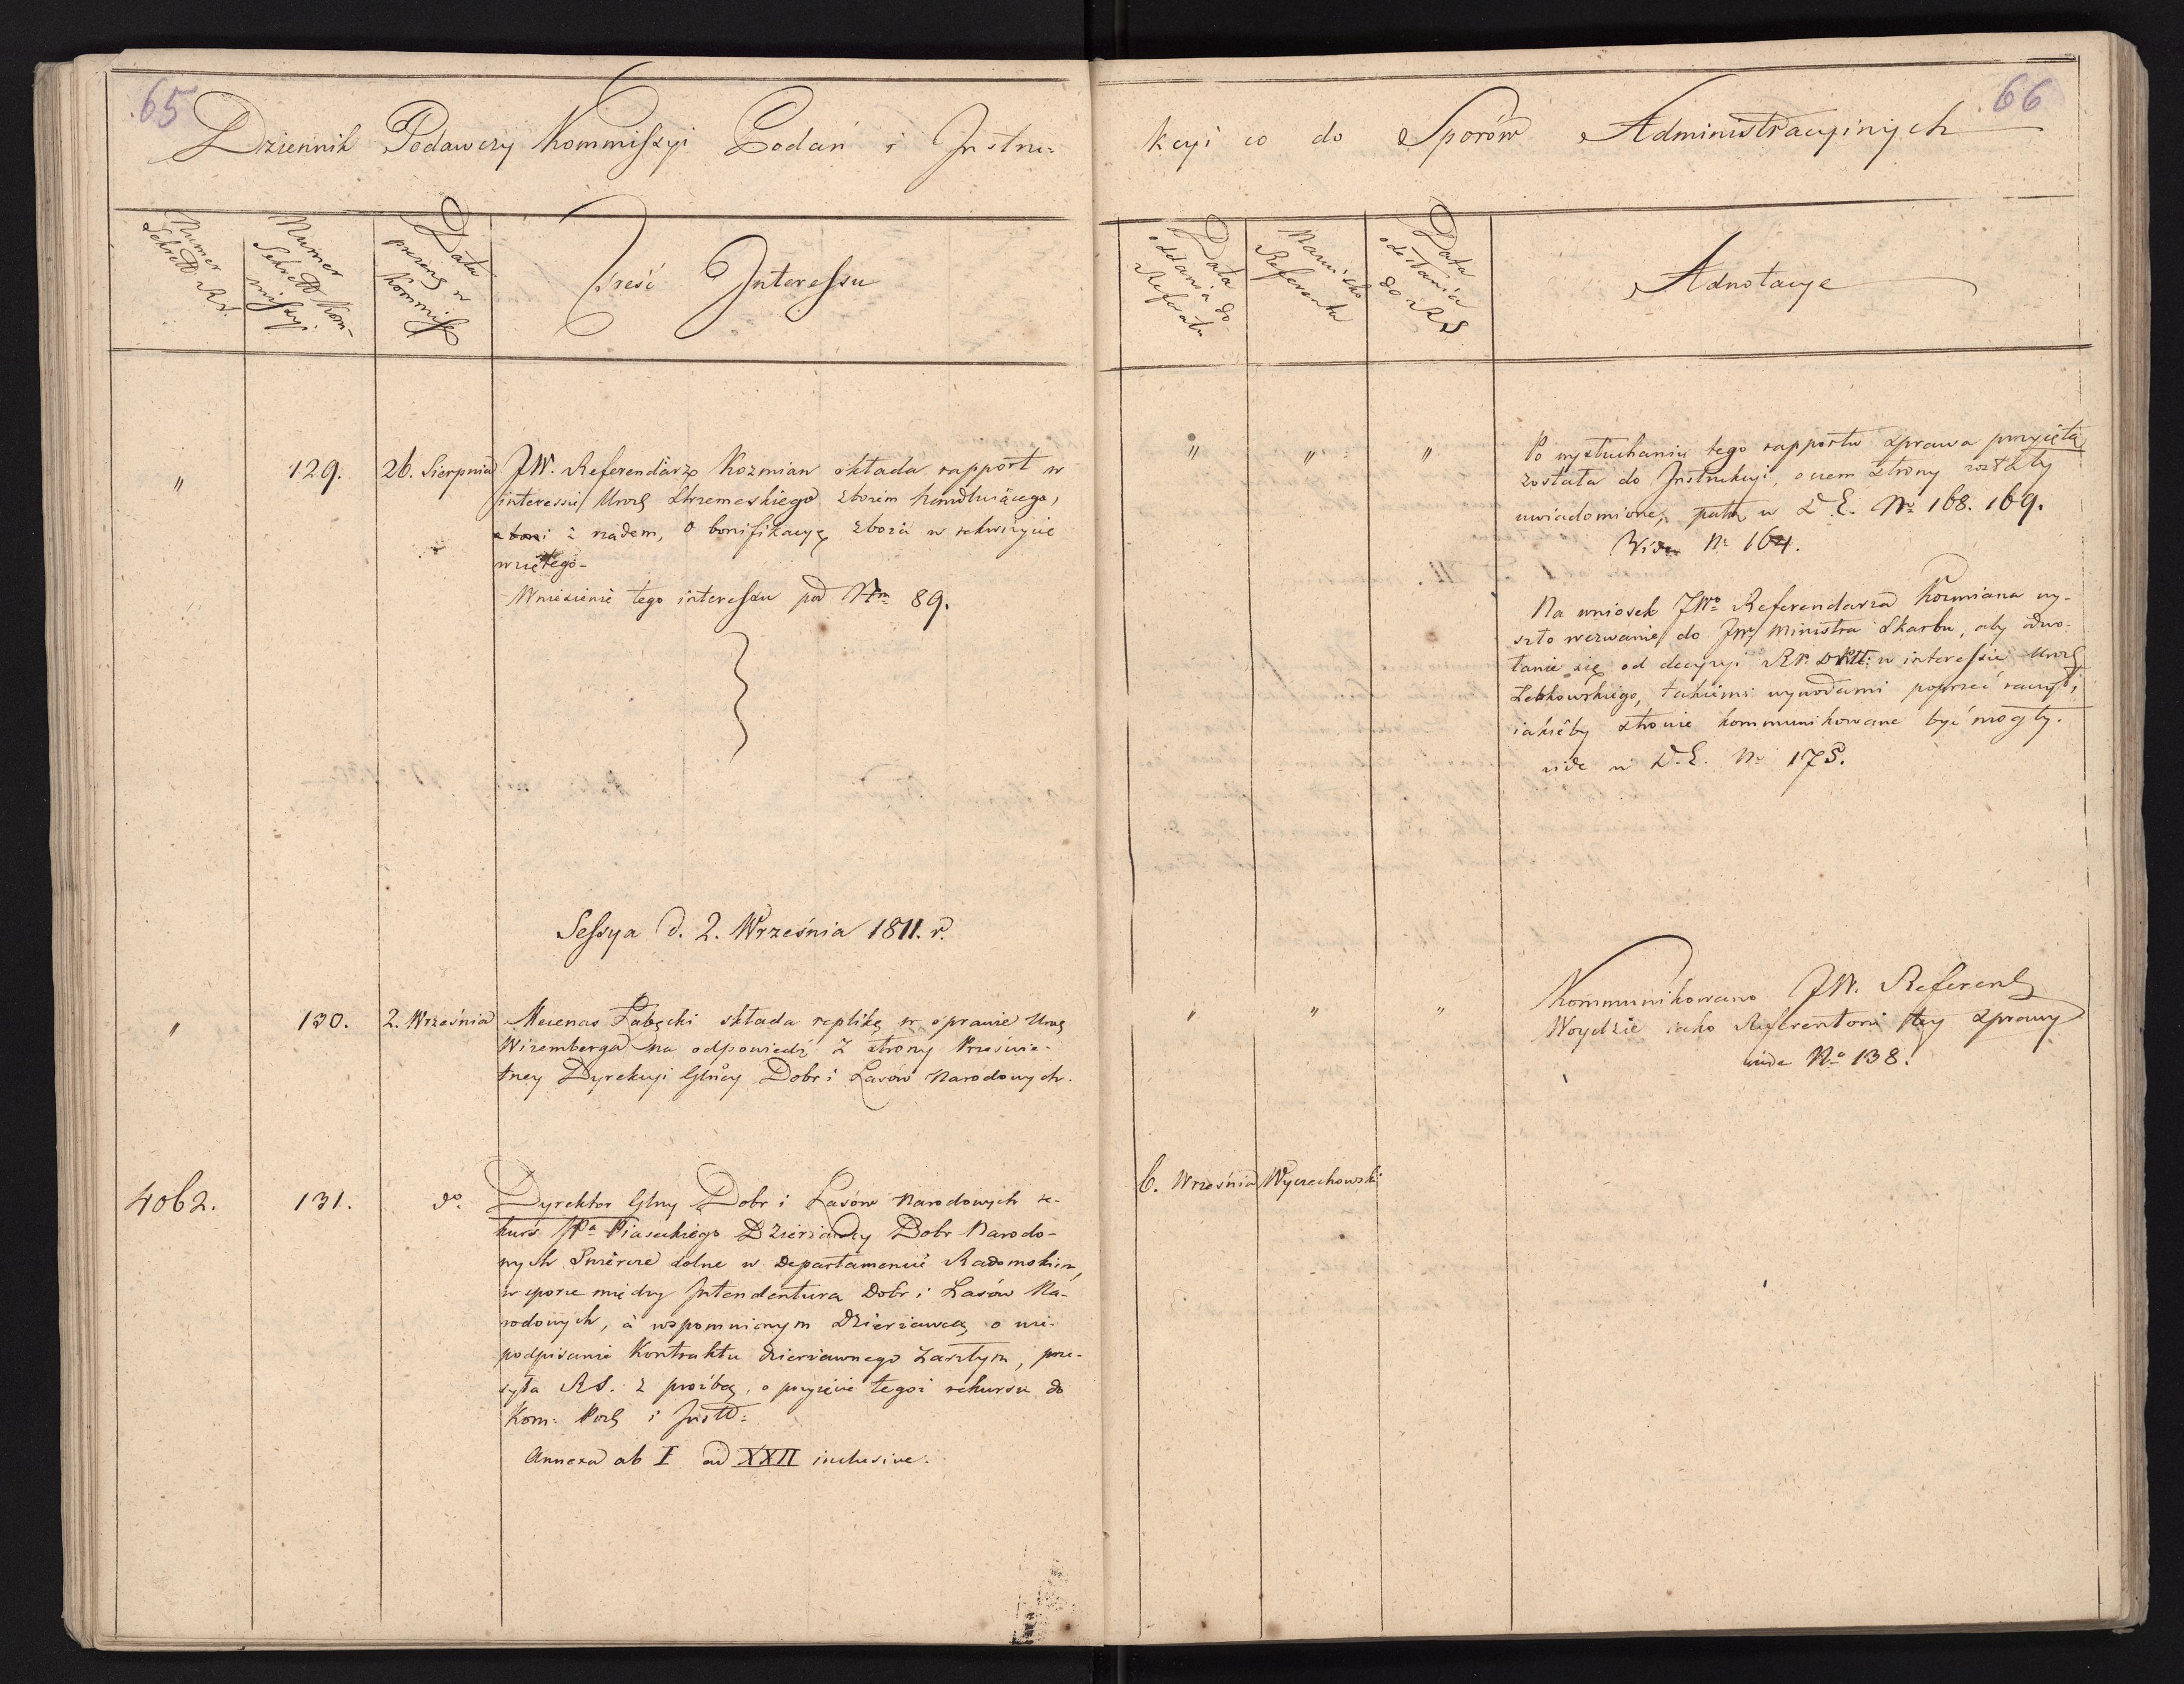 65
66
Dziennik Podawczy Kommissyi Podań i Instru-
kcyi co do Sporów Administracyinych
Numer Sekrett RS.
Numer Sekrett Kom-missyi
Data prezens w Kommiss
Treść Interessu
Data oddania do Referatu
Nazwisko Referenta
Data odesłania do RS
Adnotacye
" 129. 26. Sierpnia JW. Referendarz Kozmian składa rapport w
interessie Uroz Strzemeskiego zbożem handluiącego,
z rządem, o bonifikacyę zboża w rekwizycie
wziętego-
Wniesienie tego interessu pod Nm 89.
" " "
Po wysłuchaniu tego rapportu sprawa przyięta
została do Instrukcyi, o czem strony zostały
uwiadomione, patrz w D.E. No 168. 169.
Vide No 164.
Na wniosek JWo Referendarza Kozmiana wy-
szło wezwanie do JW Ministra Skarbu, aby odwo-
łanie się od decyzyi w interessie Uroz
Zebkowskiego, takiemi wywodami poprzeć raczył,
iakieby stronie kommunikowane być mogły.
vide w D.E. No 175.
Sessya d. 2. Września 1811. r.
" 130. 2. Września Mecenas Łabęcki składa replikę w sprawie Uroz
Wiremberga na odpowiedź z strony Prześwie-
tney Dyrekcyi Głney Dobr i Lasów Narodowych.
" " "
Kommunikowano JW. Referenz
Woydzie iako Referentowi tey sprawy
vide No 138.
4062. 131. do Dyrektor Głny Dobr i Lasów Narodowych re-
kurs Pa Piaseckiego Dzierżawcy Dobr Narodo-
wych dolne w Departamencie Radomskim,
w sporze między Intendentura Dobr i Lasów Na-
rodowych, a wspomnionym Dzierżawcą o nie-
podpisanie Kontraktu dzierżawnego zaszłym, prze-
syła RS. z prożbą, o przyięcie tegoż rekursu do
Kom: Podz i Instt:
Annexa ab I ad XXII inclusive.
6. Września Wyczechowski